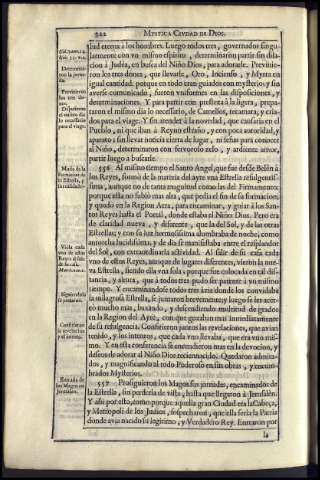 322 MYSTICA CIVDAD DE DIOS.
lud eterna à los hombres. Luego todos tres, governados singu-
larmente con vn mismo espiritu, determinaron partir sin dila-
cion à Judèa, en busca del Niño Dios, para adorarle. Previnie-
ron los tres dones, que llevarle, Oro, Incienso, y Myrra en
igual cantidad: porque en todo eran guiados con mysterio: y sin
averse comunicado, fueron vniformes en las disposiciones, y
determinaciones. Y para partir con presteza à la ligera, prepa-
raron el mismo dia lo necessario, de Camellos, recamara, y cria-
dos para el viage. Y sin atender à la novedad, que causaria en el
Pueblo, ni que iban à Reyno estraño, y con poca autoridad, y
aparato; sin llevar noticia cierta de lugar, ni señas para conocer
al Niño, determinaron con fervoroso zelo, y ardiente amor,
partir luego à buscarle.
Determinaron la jornada.
Previnieron los tres dones.
Preparan el mismo dia lo necessario para el viage.
556 Al mismo tiempo el Santo Angel, que fue desde Belèn à
los Reyes, formò de la materia del ayre vna Estrella refulgentissi-
ma, aunque no de tanta magnitud como las del Firmamento;
porque esta no subiò mas alta, que pedia el fin de su formacion:
y quedò en la Region Aerea, para encaminar, y guiar à los San-
tos Reyes hasta el Portal, donde estaba el Niño Dios. Pero era
de claridad nueva, y diferente, que la del Sol, y de las otras
Estrellas; y con su luz hermosissima alumbraba de noche, como
antorcha lucidissima, y de dia se manifestaba entre el resplandor
del Sol, con extraordinaria actividad. Al salir de su casa cada
vno de estos Reyes, aunque de lugares diferentes, vieron la nue-
va Estrella, siendo ella vna sola; porque fue colocada en tal dis-
tancia, y altura, que à todos tres pudo ser patente à vn mismo
tiempo. Y encaminandose todos tres àzia donde los convidaba
la milagrosa Estrella, se juntaron brevemente; y luego se les acer-
cò mucho mas, baxando, y descendiendo multitud de grados
en la Region del Ayre, con que gozaban mas inmediatamente
de su refulgencia. Confirieron juntos las revelaciones, que avian
tenido, y los intentos, que cada vno llevaba, que era vno mis-
mo. Y en esta conferencia se encendieron mas en la devocion, y
deseos de adorar al Niño Dios recien nacido. Quedaron admira-
dos, y magnificando al todo Poderoso en sus obras, y encum-
brados Mysterios.
557 Prosiguieron los Magos sus jornadas, encaminados de
la Estrella, sin perderla de vista, hasta que llegaron à Jerusalèn.
Y assi por esto, como porque aquella gran Ciudad era la Cabeça,
y Metropoli de los Judios, sospecharon, que ella seria la Patria
donde avia nacido su legitimo, y Verdadero Rey. Entraron por
la